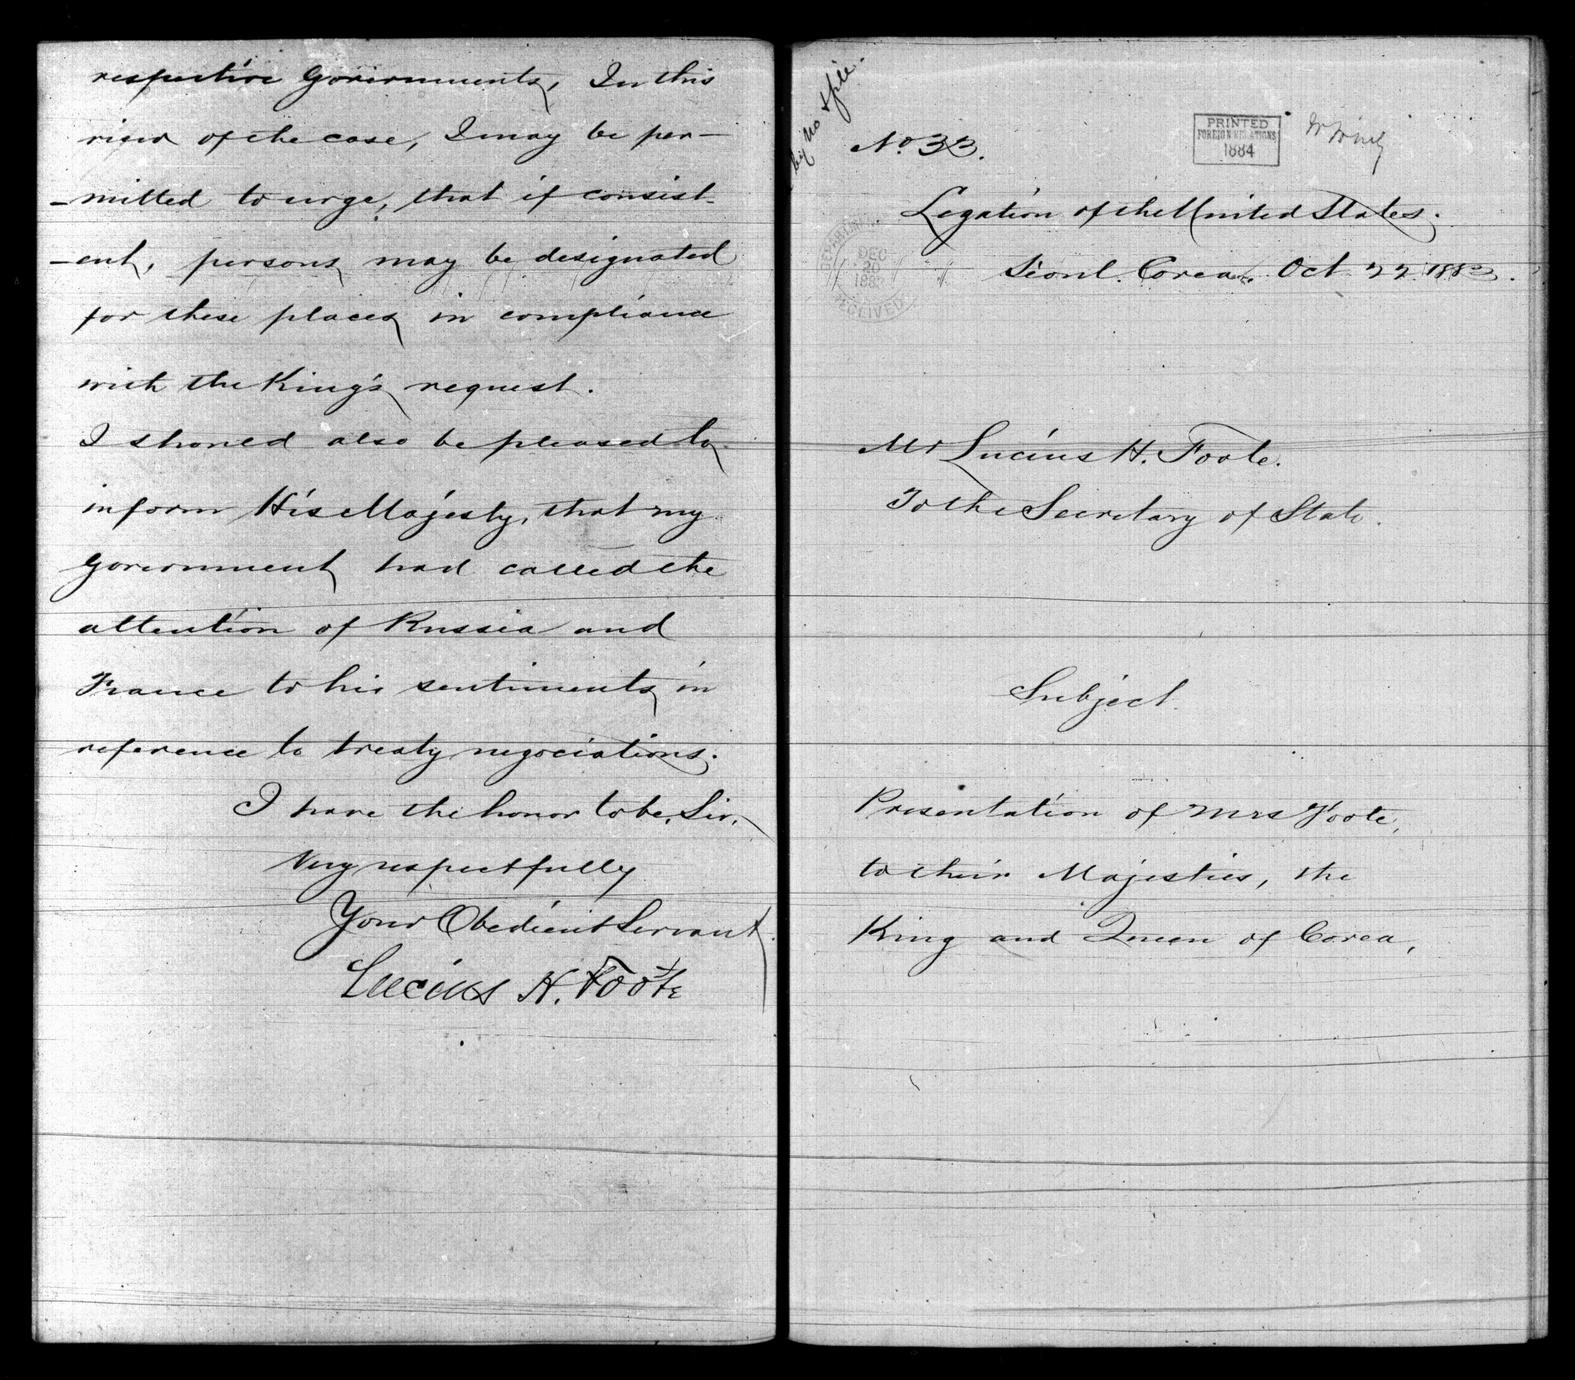 respective Governments, In this
view of the case, I may be per-
-mitted to urge, that if consist-
-ent, persons may be designated
for these places in compliance
with the King's request.
I should also be pleased to
inform His Majesty, that my
Government had called the
attention of Russia and
France to his sentiments in
reference to treaty negociations.
I have the honor to be, Sir,
Very respectfully
Your Obedient Servant
Lucius H. Foote
No 33.
PRINTED
FOREIGN RELATIONS
1884
Legation of the United States.
Seoul. Corea. Oct 22 1883.
DEC
20
1883
RECEIVED
Mr Lucius H. Foote.
To the Secretary of State.
Subject.
Presentation of Mrs Foote,
to their Majesties, the
King and Queen of Corea,